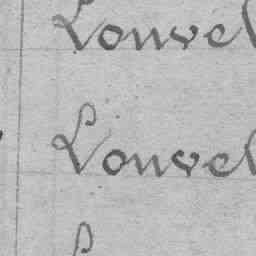 Louvel
Louvel
L